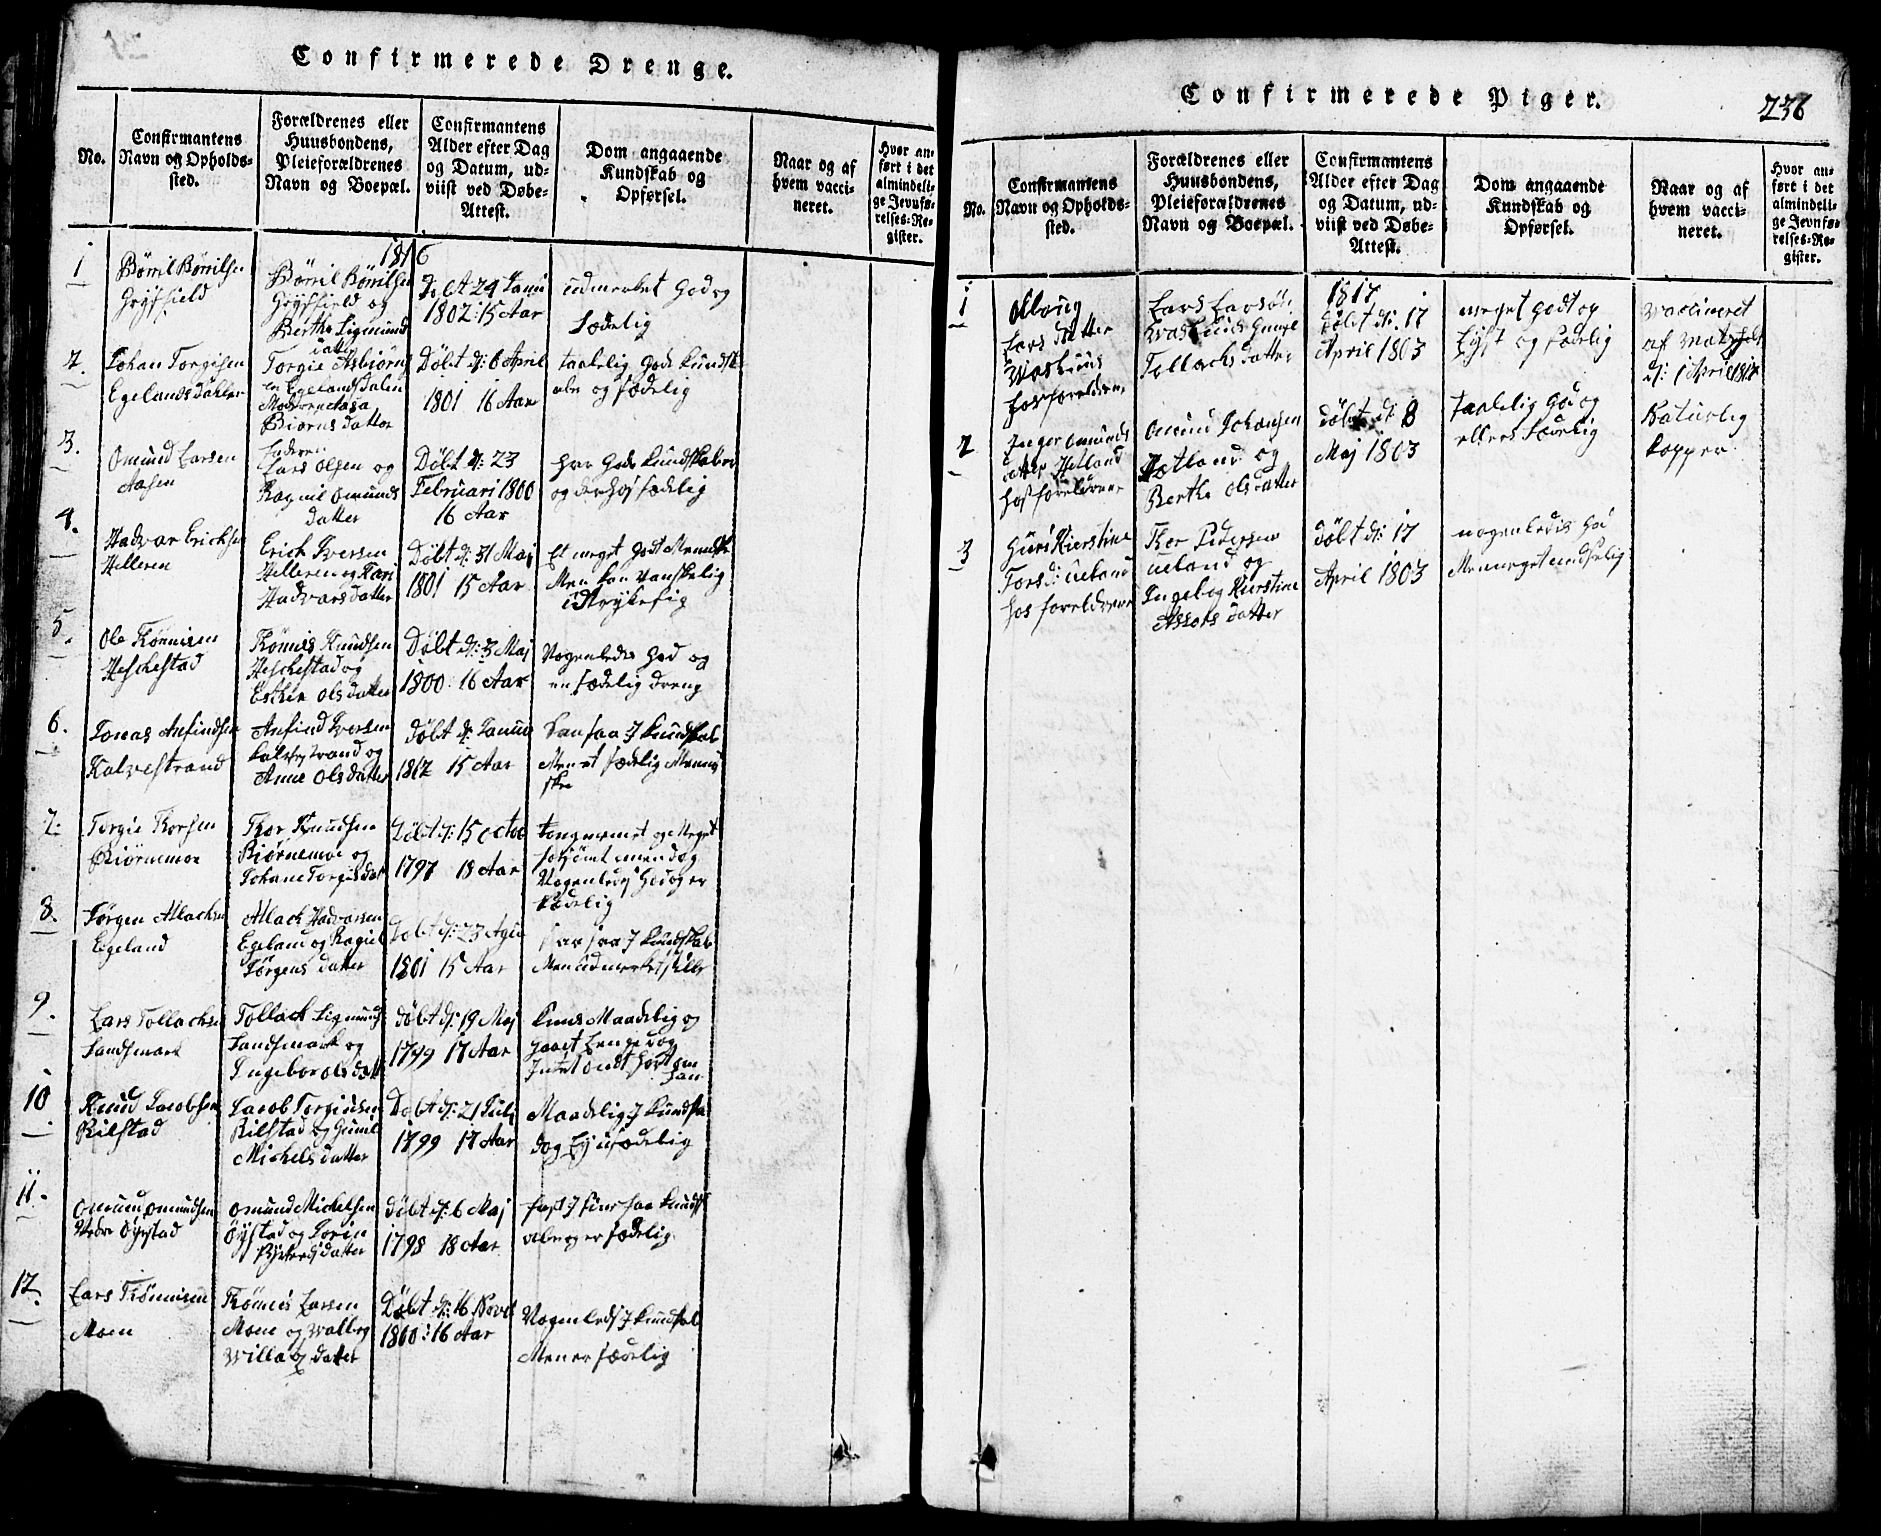 Confirmerede Drenge.
No.
Confirmantens
Navn og Opholds-
sted.
Forældrenes eller
Huusbondens,
Pleieforældrenes
Navn og Boepæl.
Confirmantens
Alder efter Dag
og Datum, ud-
viist ved Døbe-
Attest.
Dom angaaende
Kundskab og
Opførsel.
Naar og af
hvem vacci-
neret.
Hvor an-
ført i det
almindeli-
ge Jevnfø-
relses-Re-
gister.
1816
1
Børril Børrilsen
Børril Børrilsen
og
Berthe Sigmund
datter
24 Janu
1802 : 15 Aar
udmerket God og
Sædelig
2.
Johan Torgisen
Egelandsdahlen
Torgie Asbiørns
en Egelandsdalen
Moderen Aasa
Biørns datter
Døbt d: 6 April
1801 16 Aar
taalelig gode Kundsk
abe og Sædelig
3.
Omund Larsen
Aasen
Faderen
Lars Olsen og
Ragnil Omunds
datter
Døbt d: 23
Februari 1800
16 Aar
har gode Kundskaber
og derhos sædelig
4.
Hadvar Ericksen
Helleren
Erich Iversen
Helleren og Kari
Hadvarsdatter
Døbt d: 31 Maj
1801 15 Aar
Et meget godt Menneske
Men kan Vanskelig
udtrykke sig
5.
Ole Tønnisen
Heschestad
Tønnis Knudsen
Heschestad og
Esther Olsdatter
Døbt d: 3 Maj
1800 : 16 Aar
Nogenledes God og
en Sædelig dreng
6.
Jonas Anfindsen
Kalvestrand
Anfind Iversen
Kalvestrand og
Anne Olsdatter
døbt d: Januar
1802 15 Aar
Kundskab
Men et sædelig Menne
ske
7.
Torgie Thorsen
Biørnemoe
Thor Knudsen
Biørnemoe og
Johane Torgisdat
Døbt d: 15 Octob
1797 18 Aar
tungnemet og Meget
forsømt men dog
Nogenledes God og er
Sædelig
8.
Jørgen Atlachsen
Egeland
Atlack Hadvarsen
Egeland og Ragnil
Jørgens datter
Døbt d: 23
1801 15 Aar
Kundskab
Men udmerket
9.
Lars Tollachsen
Sandsmark
Tollack Sigmunds
Sandsmark og
Ingebor Olsdatt
døbt d: 19 Maj
1799 17 Aar
Kuns Maadelig og
gaaet Længe dog
Intet ondt hørt om
ham
10.
Knud Jacobsen
Rilstad
Jacob Torgiusen
Rilstad og Gunil
Michels datter
Døbt d: 21 Juli
1799 17 Aar
Maadelig I Kundska
dog Ej usædelig
11.
Omund Omundsen
Nedre Øystad
Omund Michelsen
Øystad og Torin
datter
døbt d: 6 Maj
1798 18 Aar
fast I sine faae Kundsk
abe og er Sædelig
12.
Lars Tønnisen
Moen
Tønnes Larsen
Moen og Walbor
Willads datter
Døbt d: 16 Novb
1800 : 16 Aar
Nogenleds I Kundskab
Men er sædelig
Confirmerede Piger.
236
No.
Confirmantens
Navn og Opholds-
sted.
Forældrenes eller
Huusbondens,
Pleieforældrenes
Navn og Boepæl.
Confirmantens
Alder efter Dag
og Datum, ud-
viist ved Døbe-
Attest.
Dom angaaende
Kundskab og
Opførsel.
Naar og af
hvem vacci-
neret.
Hvor an-
ført i det
almindeli-
ge Jevnfø-
relses-Re-
gister.
1817
1
Lars datter
hos foreldrene
Lars Larsøn
Tollachsdatter
døbt d: 17
April 1803
meget godt op
Lyst og sædelig
vaccineret
af
d: 1 April 1812
2
Inger Omunds
datter Hetland
hos foreldrene
Omund Johansen
Hetland og
Berthe Olsdatter
døbt d: 8
Maj 1803
Taalelig God og
ellers Sædelig
Naturlig
Kopper
3
Guri Kierstine
Torsd: Ueland
hos foreldrene
Thor Pedersen
Ueland og
Ingebog Kierstine
Assors datter
døbt d: 17
April 1803
nogenledes God
Men meget undseelig